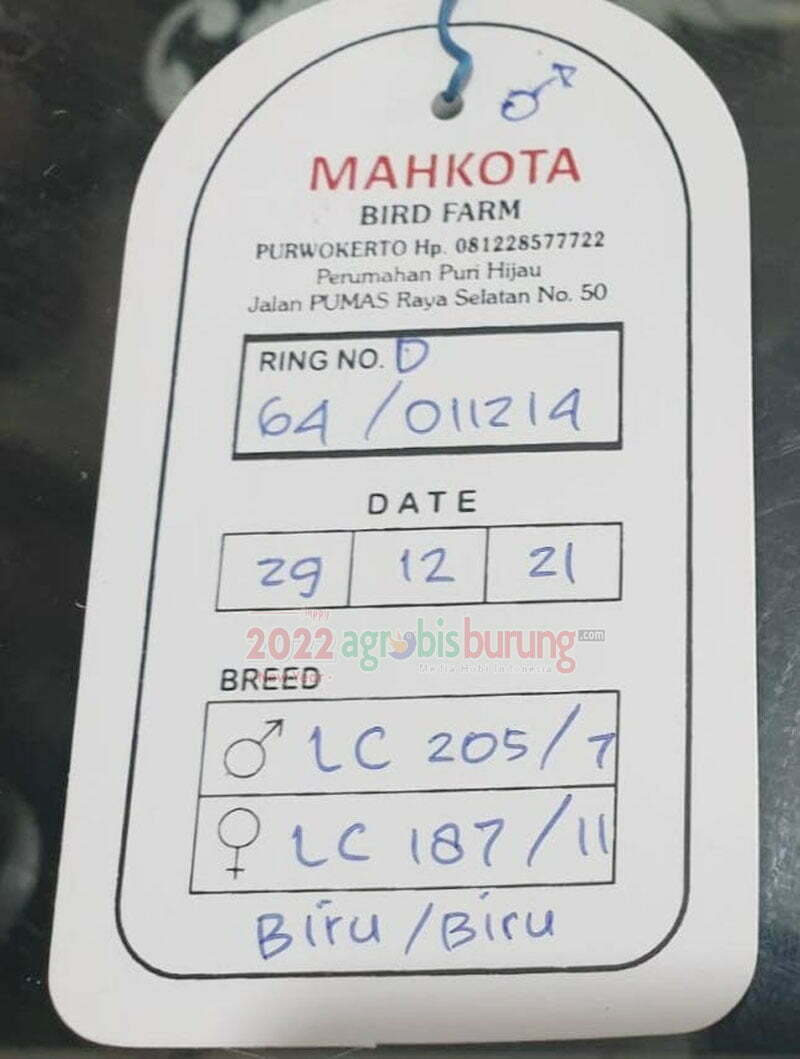 ♂
MAHKOTA
BIRD FARM
PURWOKERTO Hp. 081228577722
Perumahan Puri Hijau
Jalan PUMAS Raya Selatan No. 50
RING NO. D
64 / 011214
DATE
29 12 21
2022 agrobisburung.com
Media Hobi Indonesia
BREED
♂ LC 205/7
♀ LC 187/11
Biru / Biru